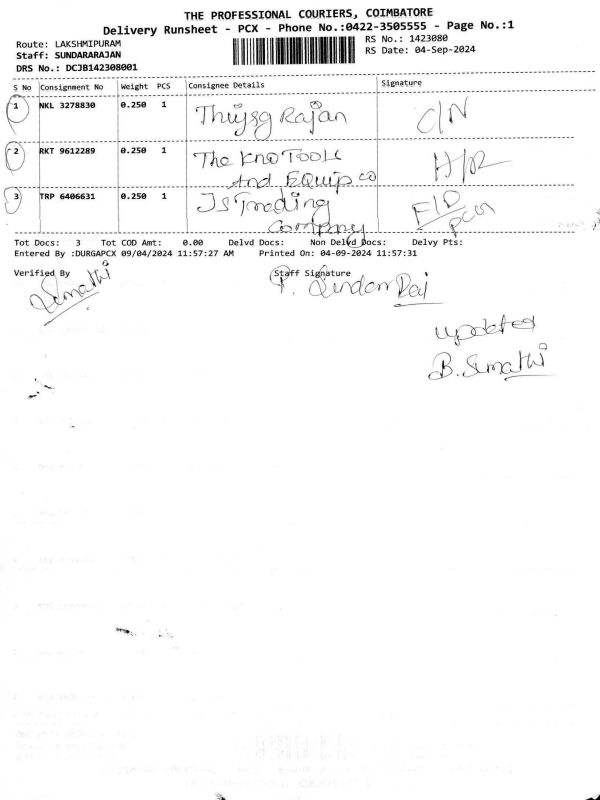 THE PROFESSIONAL COURIERS, COIMBATORE
Delivery Runsheet - PCX - Phone No.:0422-3505555 - Page No.:1
Route: LAKSHMIPURAM
RS No.: 1423080
Staff: SUNDARARAJAN
RS Date: 04-Sep-2024
DRS No.: DCJB142308001
S No Consignment No Weight PCS Consignee Details Signature
1 NKL 3278830 0.250 1 Rajan C/N
2 RKT 9612289 0.250 1 The Kno Tools H/R
And Equip co
3 TRP 6406631 0.250 1 JS Trading F/D
Company
Tot Docs: 3 Tot COD Amt: 0.00 Delvd Docs: Non Delvd Docs: Delvy Pts:
Entered By :DURGAPCX 09/04/2024 11:57:27 AM Printed On: 04-09-2024 11:57:31
Verified By Staff Signature
updated
B. Sumathi